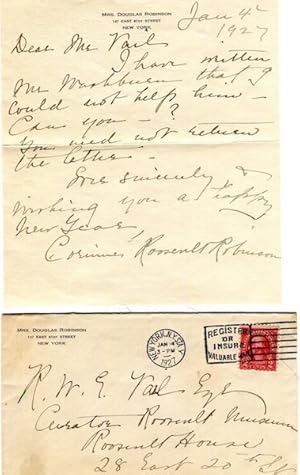 MRS. DOUGLAS ROBINSON
147 EAST 61ST STREET
NEW YORK
Jan 4th
1927
Dear Mr Vail
I have written
Mr Washburn that I
could not help him—
Can you—?
You need not return
the letter—
Ever sincerely &
wishing you a Happy
New Year,
Corinne Roosevelt Robinson
MRS. DOUGLAS ROBINSON
EAST 61ST STREET
NEW YORK
NEW YORK, N.Y.
JAN 4
5-PM
1927
REGISTER
OR
INSURE
VALUABLE MAIL
R. W. G. Vail Esq
Curator Roosevelt Museum
Roosevelt House
28 East 20th St